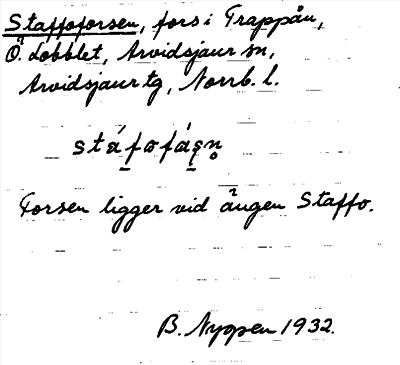 Staffoforsen, fors i Trappån,
Ö. Lobblet, Arvidsjaur sn,
Arvidsjaur tg, Norrb. l.
Forsen ligger vid ängen Staffo.
B. Nygren 1932.